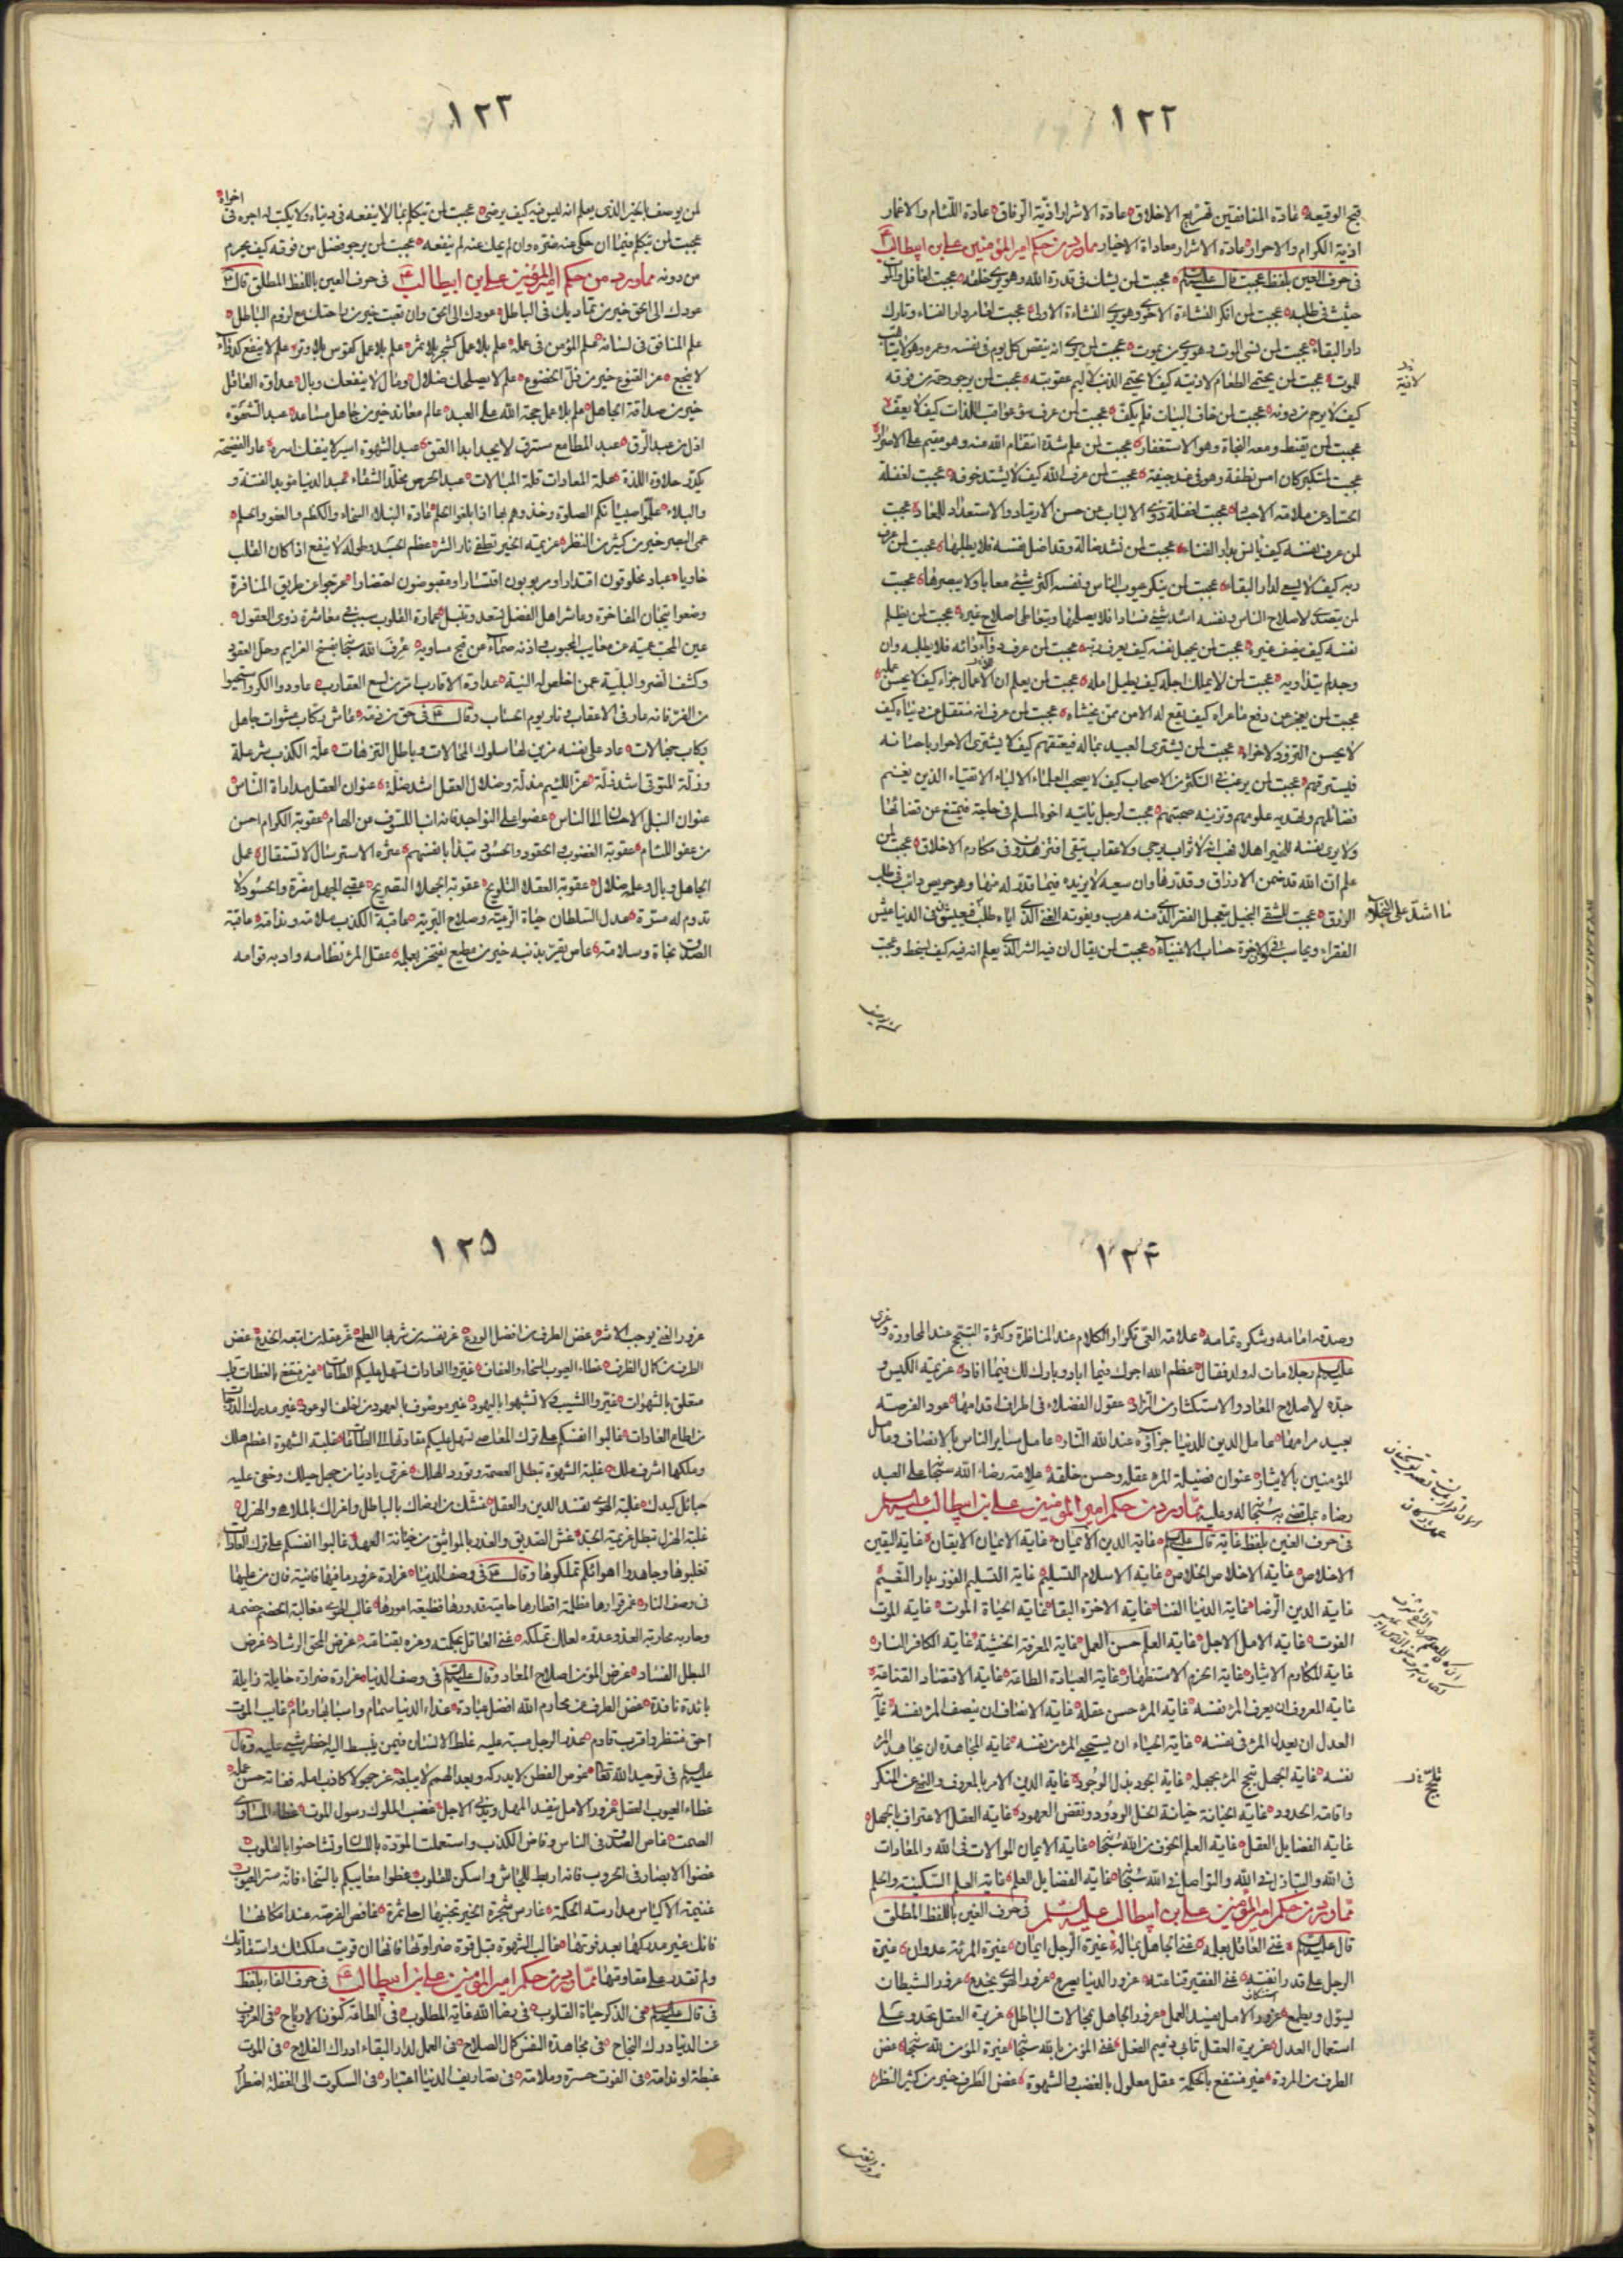 ١٢٢
قبح الوقيعة عادة المنافقين تهزيع الاخلاق عادة الاشرار اذية الرفاق عادة اللئام والاغمار
اذية الكرام والاحرار عادة الاشرار معاداة الاخيار مما ورد من حكم امير المؤمنين علي بن ابيطالب
في حرف العين بلفظ عجبت قال عليه السلام عجبت لمن يشك في قدرة الله وهو يرى خلقه عجبت لغافل والموت
حثيث في طلبه عجبت لمن انكر النشاءة الاخرى وهو يرى النشاءة الاولى عجبت لعامر دار الفناء وتارك
دار البقاء عجبت لمن نسى الموت وهو يرى من يموت عجبت لمن يرى انه ينقص كل يوم في نفسه وعمره وهو لا يتاهب
للموت عجبت لمن يحتمي الطعام لاذيته كيف لا يحتمي الذنب لاليم عقوبته عجبت لمن يرجو رحمة من فوقه
كيف لا يرحم من دونه عجبت لمن خاف البيات فلم يكف عجبت لمن عرف سوء عواقب اللذات كيف لا يعف
عجبت لمن يقنط ومعه النجاة وهو الاستغفار عجبت لمن علم شدة انتقام الله منه وهو مقيم على الاصرار
عجبت لمتكبر كان امس نطفة وهو في غد جيفة عجبت لمن عرف الله كيف لا يشتد خوفه عجبت لغفلة
الحساد عن سلامة الاجساد عجبت لغفلة ذوي الالباب عن حسن الارتياد والاستعداد للمعاد عجبت
لمن عرف نفسه كيف يانس بدار الفناء عجبت لمن نشد ضالته وقد اضل نفسه فلا يطلبها عجبت لمن عرف
ربه كيف لا يسعى لدار البقاء عجبت لمن ينكر عيوب الناس ونفسه اكثر شيء معابا ولا يبصرها عجبت
لمن يتصدى لاصلاح الناس ونفسه اشد شيء فسادا فلا يصلحها ويتعاطى اصلاح غيره عجبت لمن يظلم
نفسه كيف ينصف غيره عجبت لمن يجهل نفسه كيف يعرف ربه عجبت لمن عرف دواء دائه فلا يطلبه وان
وجده لم يتداو به عجبت لمن لا يملك اجله كيف يطيل امله عجبت لمن يعلم ان للاعمال جزاء كيف لا يحسن عمله
عجبت لمن يعجز عن دفع ما عراه كيف يقع له الامن ممن يخشاه عجبت لمن عرف انه منتقل عن دنياه كيف
لا يحسن التزود لاخراه عجبت لمن يشترى العبيد بماله فيعتقهم كيف لا يشترى الاحرار باحسانه
فيسترقهم عجبت لمن يرغب في التكثر من الاصحاب كيف لا يصحب العلماء الالباء الاتقياء الذين يغنم
فضائلهم وتهديه علومهم وتزينه صحبتهم عجبت لرجل ياتيه اخوه المسلم في حاجة فيمتنع عن قضائها
ولا يرى نفسه للخير اهلا فهب انه لا ثواب يرجى ولا عقاب يتقى افتزهدون في مكارم الاخلاق عجبت لمن
علم ان الله قد ضمن الارزاق وقدرها وان سعيه لا يزيده فيما قدر له منها وهو حريص دائب في طلب
الرزق عجبت للشقي البخيل يتعجل الفقر الذي منه هرب ويفوته الغنى الذي اياه طلب فيعيش في الدنيا عيش
الفقراء ويحاسب في الاخرة حساب الاغنياء عجبت لمن يقال ان فيه الشر الذي يعلم انه فيه كيف يسخط وعجبت
١٢٣
لمن يوصف بالخير الذي يعلم انه ليس فيه كيف يرضى عجبت لمن يتكلم بما لا ينفعه في دنياه ولا يكتب له اجره في اخراه
عجبت لمن يتكلم فيما ان حكى عنه ضره وان لم يحك عنه لم ينفعه عجبت لمن يرجو فضل من فوقه كيف يحرم
من دونه مما ورد من حكم امير المؤمنين علي بن ابيطالب في حرف العين باللفظ المطلق قال
عودك الى الحق خير من تماديك في الباطل عودك الى الحق وان تعبت خير من راحتك مع لزوم الباطل
علم المنافق في لسانه علم المؤمن في عمله علم بلا عمل كشجر بلا ثمر علم بلا عمل كقوس بلا وتر علم لا ينفع كدواء
لا ينجع عز القنوع خير من ذل الخضوع علم لا يصلحك ضلال ومال لا ينفعك وبال عداوة العاقل
خير من صداقة الجاهل علم بلا عمل حجة الله على العبد عالم معاند خير من جاهل مساعد عبد الشهوة
اذل من عبد الرق عبد المطامع مسترق لا يجد ابدا العتق عبد الشهوة اسير لا ينفك اسره عار الفضيحة
يكدر حلاوة اللذة علة المعادات قلة المبالات عبد الحرص مخلد الشقاء عبد الدنيا مؤبد الفتنة و
والبلاء علموا صبيانكم الصلوة وخذوهم بها اذا بلغوا الحلم عادة النبلاء السخاء والكظم والعفو والحلم
عمى البصر خير من كثير من النظر عزيمة الخير تطفي نار الشر عظم الجسد وطوله لا ينفع اذا كان القلب
خاويا عباد مخلوقون اقتدارا ومربوبون اقتسارا ومقبوضون احتضارا عرجوا عن طريق المنافرة
وضعوا تيجان المفاخرة وعاشر اهل الفضل تسعد وتنبل عمارة القلوب في معاشرة ذوي العقول
عين المحب عمية عن معايب المحبوب واذنه صماء عن قبح مساويه عرفت الله سبحانه بفسخ العزايم وحل العقود
وكشف الضر والبلية عمن اخلص له النية عداوة الاقارب امر من لسع العقارب عاودوا الكر واستحيوا
من الفر فانه عار في الاعقاب ونار يوم الحساب وقال في حق من ذمه عاش ركاب عشوات جاهل
ركاب جهالات عاد على نفسه مزين لها سلوك المحالات وباطل الترهات علة الكذب شر علة
وزلة المتوقي اشد زلة عز اللئيم مذلة وضلال العقل اشد ضلة عنوان العقل مداراة الناس
عنوان النبل الاحسان الى الناس عضوا على النواجذ فانه انبا للسيوف عن الهام عقوبة الكرام احسن
من عفو اللئام عقوبة الغضوب والحقود والحسود تبدأ بانفسهم عثرة الاسترسال لا تستقال عمل
الجاهل وبال وعلمه ضلال عقوبة العقلاء التلويح عقوبة الجهلاء التصريح عقبى الجهل مضرة والحسود لا
تدوم له مسرة عدل السلطان حياة الرعية وصلاح البرية عاقبة الكذب ملامة وندامة عاقبة
الصدق نجاة وسلامة عاص يقر بذنبه خير من مطيع يفتخر بعمله عقل المرء نظامه وادبه قوامه
١٢٤
وصدقه امامه وشكره تمامه علامة العي تكرار الكلام عند المناظرة وكثرة التبجح عند المحاورة وعزى
عليه السلام رجلا مات له ولد فقال عظم الله اجرك فيما اباد وبارك لك فيما افاد عزيمة الكيس و
جده لاصلاح المعاد والاستكثار من الزاد عقول الفضلاء في اطراف اقلامها عود الفرصة
بعيد مرامها عامل الدين للدنيا جزاؤه عند الله النار عامل ساير الناس بالانصاف وعامل
المؤمنين بالايثار عنوان فضيلة المرء عقله وحسن خلقه علامة رضاء الله سبحانه على العبد
رضاه بما قضى به سبحانه له وعليه مما ورد من حكم امير المؤمنين علي بن ابيطالب عليه السلم
في حرف الغين بلفظ غاية قال عليه السلام غاية الدين الايمان غاية الايمان الايقان غاية اليقين
الاخلاص غاية الاخلاص الخلاص غاية الاسلام التسليم غاية التسليم الفوز بدار النعيم
غاية الدين الرضا غاية الدنيا الفنا غاية الاخرة البقا غاية الحياة الموت غاية الموت
الفوت غاية الامل الاجل غاية العلم حسن العمل غاية المعرفة الخشية غاية الكافر النار
غاية المكارم الايثار غاية الحزم الاستظهار غاية العبادة الطاعة غاية الاقتصاد القناعة
غاية المعروف ان يعرف المرء نفسه غاية المرء حسن عقله غاية الانصاف ان ينصف المرء نفسه غاية
العدل ان يعدل المرء في نفسه غاية الحياء ان يستحي المرء من نفسه غاية المجاهدة ان يجاهد المرء
نفسه غاية الجهل تبجح المرء بجهله غاية الجود بذل الوجود غاية الدين الامر بالمعروف والنهي عن المنكر
واقامة الحدود غاية الخيانة خيانة الخل الودود ونقض العهود غاية العقل الاعتراف بالجهل
غاية الفضايل العقل غاية العلم الخوف من الله سبحانه غاية الايمان الموالات في الله والمعادات
في الله والتباذل في الله والتواصل في الله سبحانه غاية الفضايل العلم غاية العلم السكينة والحلم
مما ورد من حكم امير المؤمنين علي بن ابيطالب عليه السلم في حرف الغين باللفظ المطلق
قال عليه السلام غنى العاقل بعلمه غنى الجاهل بماله غيرة الرجل ايمان غيرة المرأة عدوان غيرة
الرجل على قدر انفته غنى الفقير قناعته غرور الدنيا يصرع غرور الهوى يخدع غرور الشيطان
يسول ويطمع غرور الامل يفسد العمل غرور الجاهل بمحالات الباطل غريزة العقل تحدو على
استعمال العدل غريزة العقل تابى ذميم الفعل غنى المؤمن بالله سبحانه غيرة المؤمن لله سبحانه غض
الطرف من المروة غير منتفع بالحكمة عقل معلول بالغضب والشهوة غض الطرف خير من كثير النظر
١٢٥
غرور الغنى يوجب الاشر غض الطرف من افضل الورع غر نفسه من شربها الطمع غر عقله من اتبعه الخدع غض
الطرف من كمال الظرف غطاء العيوب السخاء والعفاف غيروا العادات تسهل عليكم الطاعات غير منتفع بالعظات قلب
متعلق بالشهوات غيروا الشيب ولا تشبهوا باليهود غير موصوف بالعهود من اخلف الوعود غير مدرك الدرجات
من اطاع العادات غالبوا انفسكم على ترك المعاصي تسهل عليكم مقادتها الى الطاعات غلبة الشهوة اعظم هلك
وملكها اشرف ملك غلبة الشهوة تبطل العصمة وتورد الهلك غري يا دنيا من جهل حيلك وخفي عليه
حبائل كيدك غلبة الهوى تفسد الدين والعقل غشك من ارضاك بالباطل واغراك بالملاهي والهزل
غلبة الهزل تبطل عزيمة الجد غش الصديق والغدر بالمواثيق من خيانة العهد غالبوا انفسكم على ترك العادات
تغلبوها وجاهدوا اهوائكم تملكوها وقال في وصف الدنيا غرارة غرور ما فيها فانية فان من عليها
في وصف النار غمر قرارها مظلمة اقطارها حامية قدورها فظيعة امورها غالب الهوى مغالبة الخصم خصمه
وحاربه محاربة العدو عدوه لعلك تملكه غنى العاقل بحكمته وعزه بقناعته غرض المحق الرشاد غرض
المبطل الفساد غرض المؤمن اصلاح المعاد وقال عليه السلام في وصف الدنيا غرارة ضرارة حايلة زايلة
بائدة نافدة غض الطرف عن محارم الله افضل عبادة غذاء الدنيا سمام واسبابها رمام غايب الموت
احق منتظر واقرب قادم غدر الرجل مسبة عليه غلط الانسان فيمن ينبسط اليه احظر شيء عليه وقال
عليه السلام في توحيد الله تعالى غوص الفطن لا يدركه وبعد الهمم لا يبلغه غر جهولا كاذب امله ففاته حسن عمله
غطاء العيوب العقل غرور الامل ينفد المهل ويدني الاجل غضب الملوك رسول الموت غطاء المساوي
الصمت غاض الصدق في الناس وفاض الكذب واستعملت المودة باللسان وتشاحنوا بالقلوب
غضوا الابصار في الحروب فانه اربط للجاش واسكن للقلوب غطوا معايبكم بالسخاء فانه ستر العيوب
غنيمة الاكياس مدارسة الحكمة غارس شجرة الخير تجتنيها احلى ثمرة غافص الفرصة عند امكانها
فانك غير مدركها بعد فوتها غالب الشهوة قبل قوة ضراوتها فانها ان قويت ملكتك واستقادتك
ولم تقدر على مقاومتها مما ورد من حكم امير المؤمنين علي بن ابيطالب في حرف الفاء بلفظ
في قال عليه السلام في الذكر حياة القلوب في رضا الله غاية المطلوب في الطاعة كنوز الارباح في العزوف
عن الدنيا درك النجاح في مجاهدة النفس كمال الصلاح في العمل لدار البقاء ادراك الفلاح في الموت
غبطة او ندامة في الفوت حسرة وملامة في تصاريف الدنيا اعتبار في السكوت الى الغفلة اضطرار